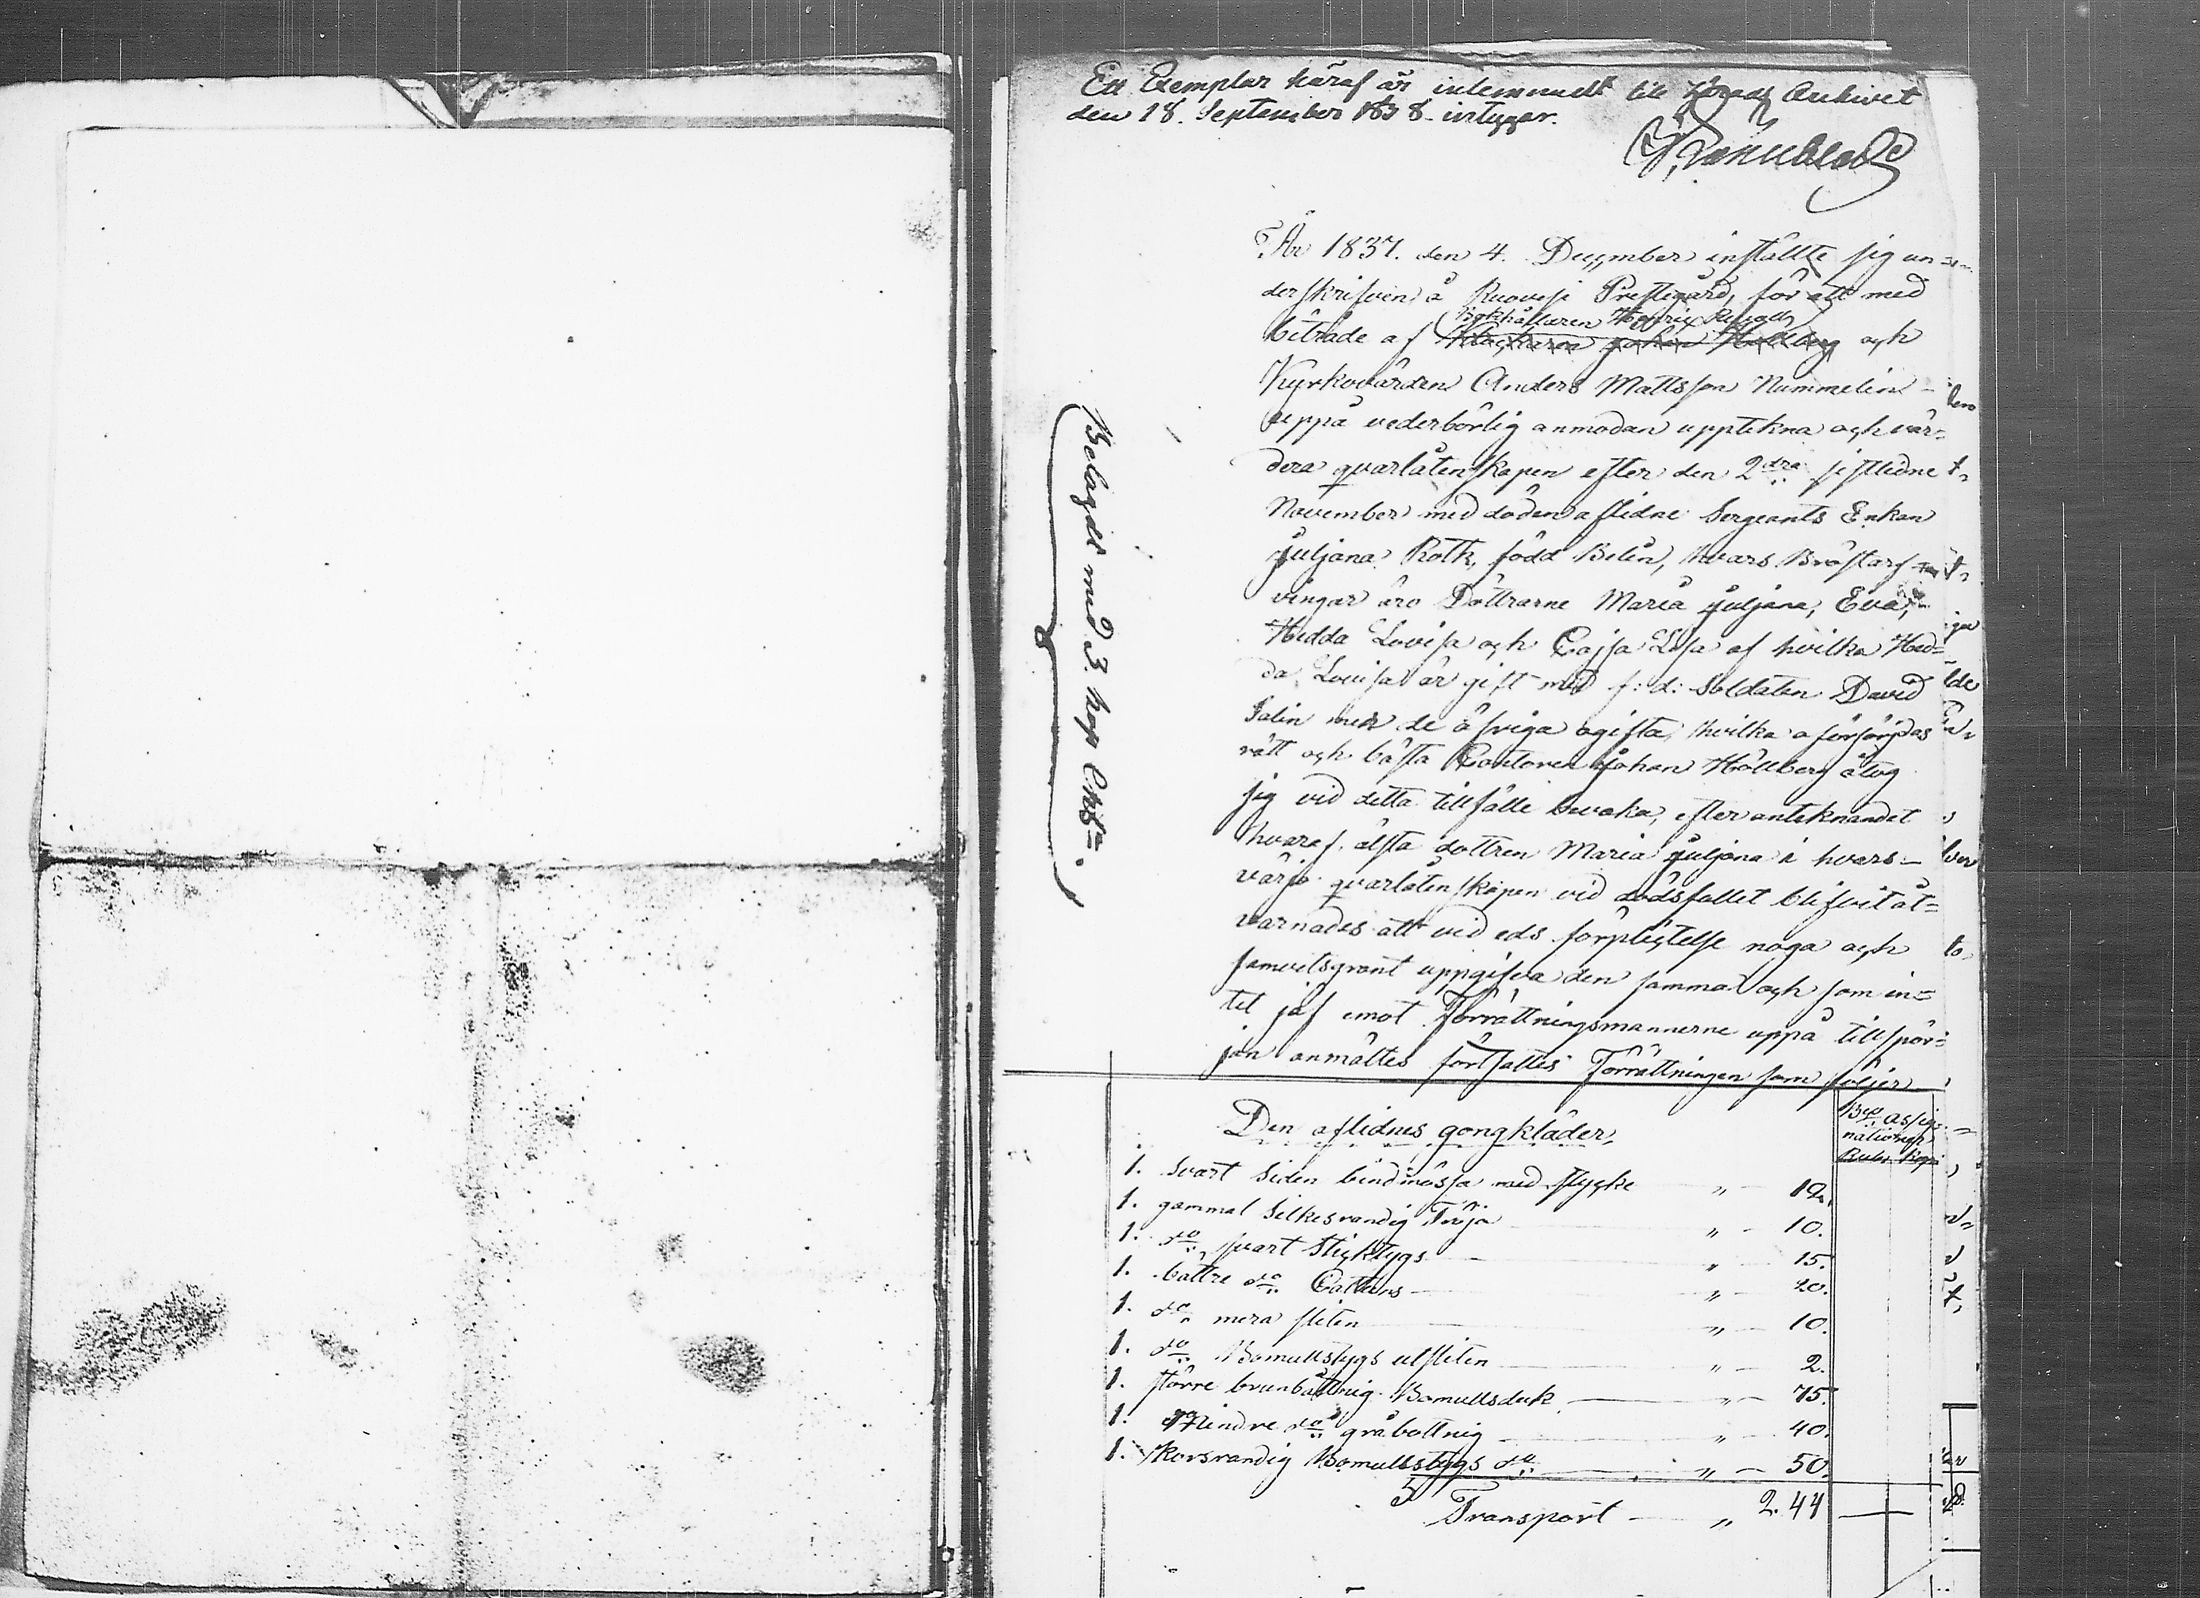 Ett Exemplar häraf är inlemnadt till Härads Archivet
den 18. September 1838. intygar.
År 1837. den 4. December instälte sig un-
derskrifven å Ruovesi Prestegård, för att med
Bokhållaren Henric
biträde af Klockaren Johan Hällberg och
Kyrkovärden Anders Mattsson Nummelin
uppå vederbörlig anmodan upptekna och vär-
dera qvarlåtenskapen efter den 2dra sistledne
November med döden aflidne Sergeants Enkan
Juljana Roth, född Belin, hvars Bröstarf-
vingar äro Döttrarne Maria Juljana, Eva,
Hedda Lovisa och Cajsa Lisa af hvilka Hed-
da Lovisa är gift med f: d: Soldaten David
Salin men de öfriga ogifta, hvilka oförsörjdas
rätt och bästa Cantoren Johan Hällberg åtog
sig vid detta tillfälle bevaka, efter anteknandet
hvaraf älsta dottren Maria Juljana i hvars
värjo qvarlåtenskapen vid dödsfallet blifvit åt-
varnades att vid eds förplictelse noga och
samvetsgrant uppgifva den samma och som in-
tet jäf emot Förrättningsmannerne uppå tillspör-
jan anmältes fortsattes Förrättningen som följer
Belages med 3. kop Chta.
Bco assig-
nationer
Rubr Kop
Den aflidnes gongkläder,
1. Svart Siden bindmössa med stycke " 12.
1. gammal Silkesrandig Tröja " 10.
1. do svart Stycktygs " 15.
1. bättre do Cattuns " 20.
1. do mera sliten " 10.
1. do Bomullstygs utsliten " 2.
1. större brunbåttnig Bomullsduk " 75.
1. Mindre do gråbottnig " 40.
1. Korsrandig Bomullstygs do " 50.
Transport " 2. 44